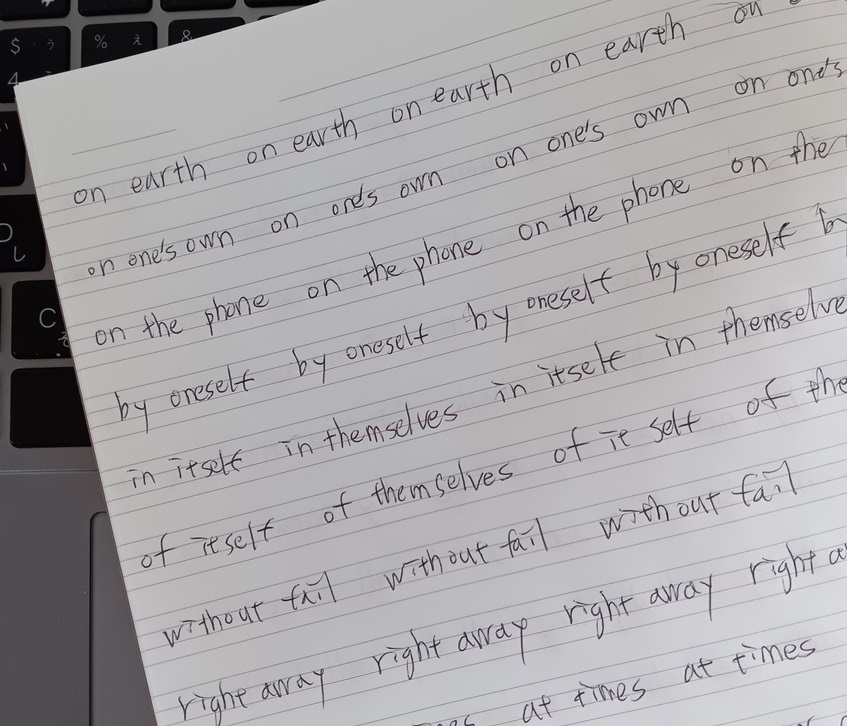 $ 4 % &
C
on earth on earth on earth on earth on
on one's own on one's own on one's own on one's
on the phone on the phone on the phone on the
by oneself by oneself by oneself by oneself
in itself in themselves in itself in themselves
of itself of themselves of itself of the
without fail without fail without fail
right away right away right away right
at times at times